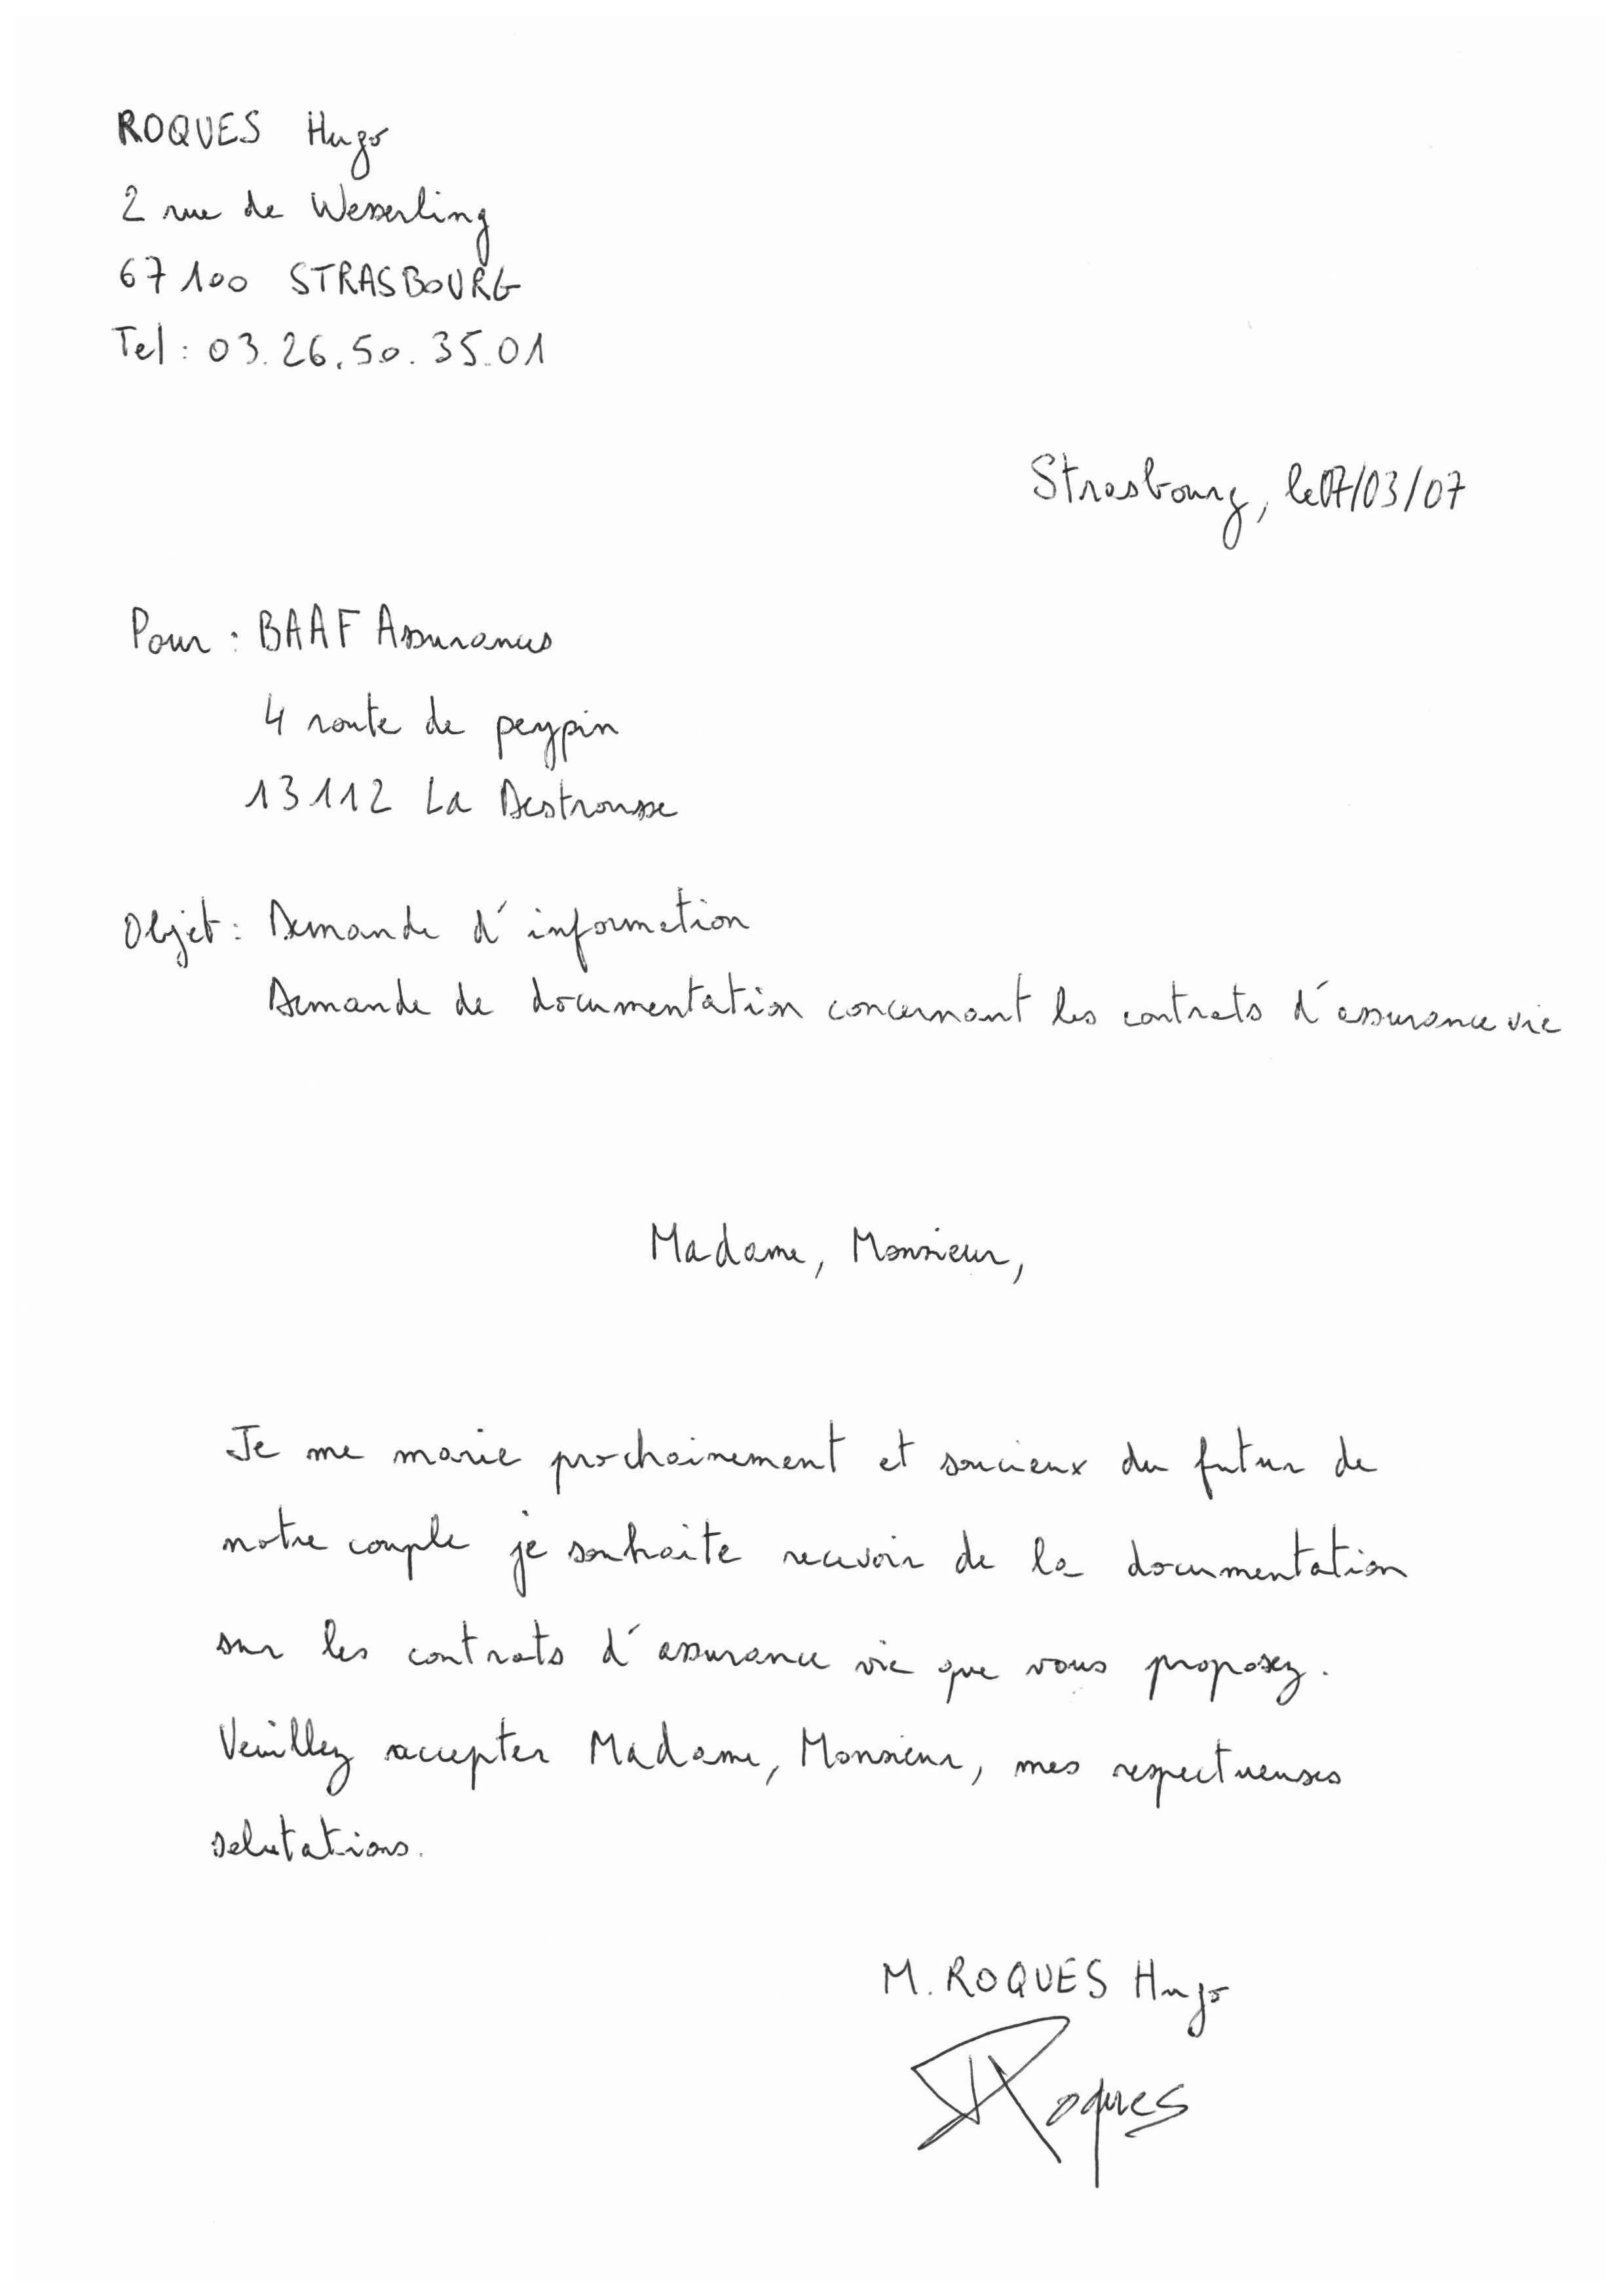 ROQUES Hugo
2 rue de Wesserling
67100 STRASBOURG
Tel : 03.26.50.35.01
Strasbourg, le 07/03/07
Pour : BAAF Assurances
4 route de peypin
13112 La Destrousse
Objet : Demande d'information
Demande de documentation concernant les contrats d'assurance vie
Madame, Monsieur,
Je me marie prochainement et soucieux du futur de
notre couple je souhaite recevoir de la documentation
sur les contrats d'assurance vie que vous proposez.
Veuillez accepter Madame, Monsieur, mes respectueuses
salutations.
M. ROQUES Hugo
Roques